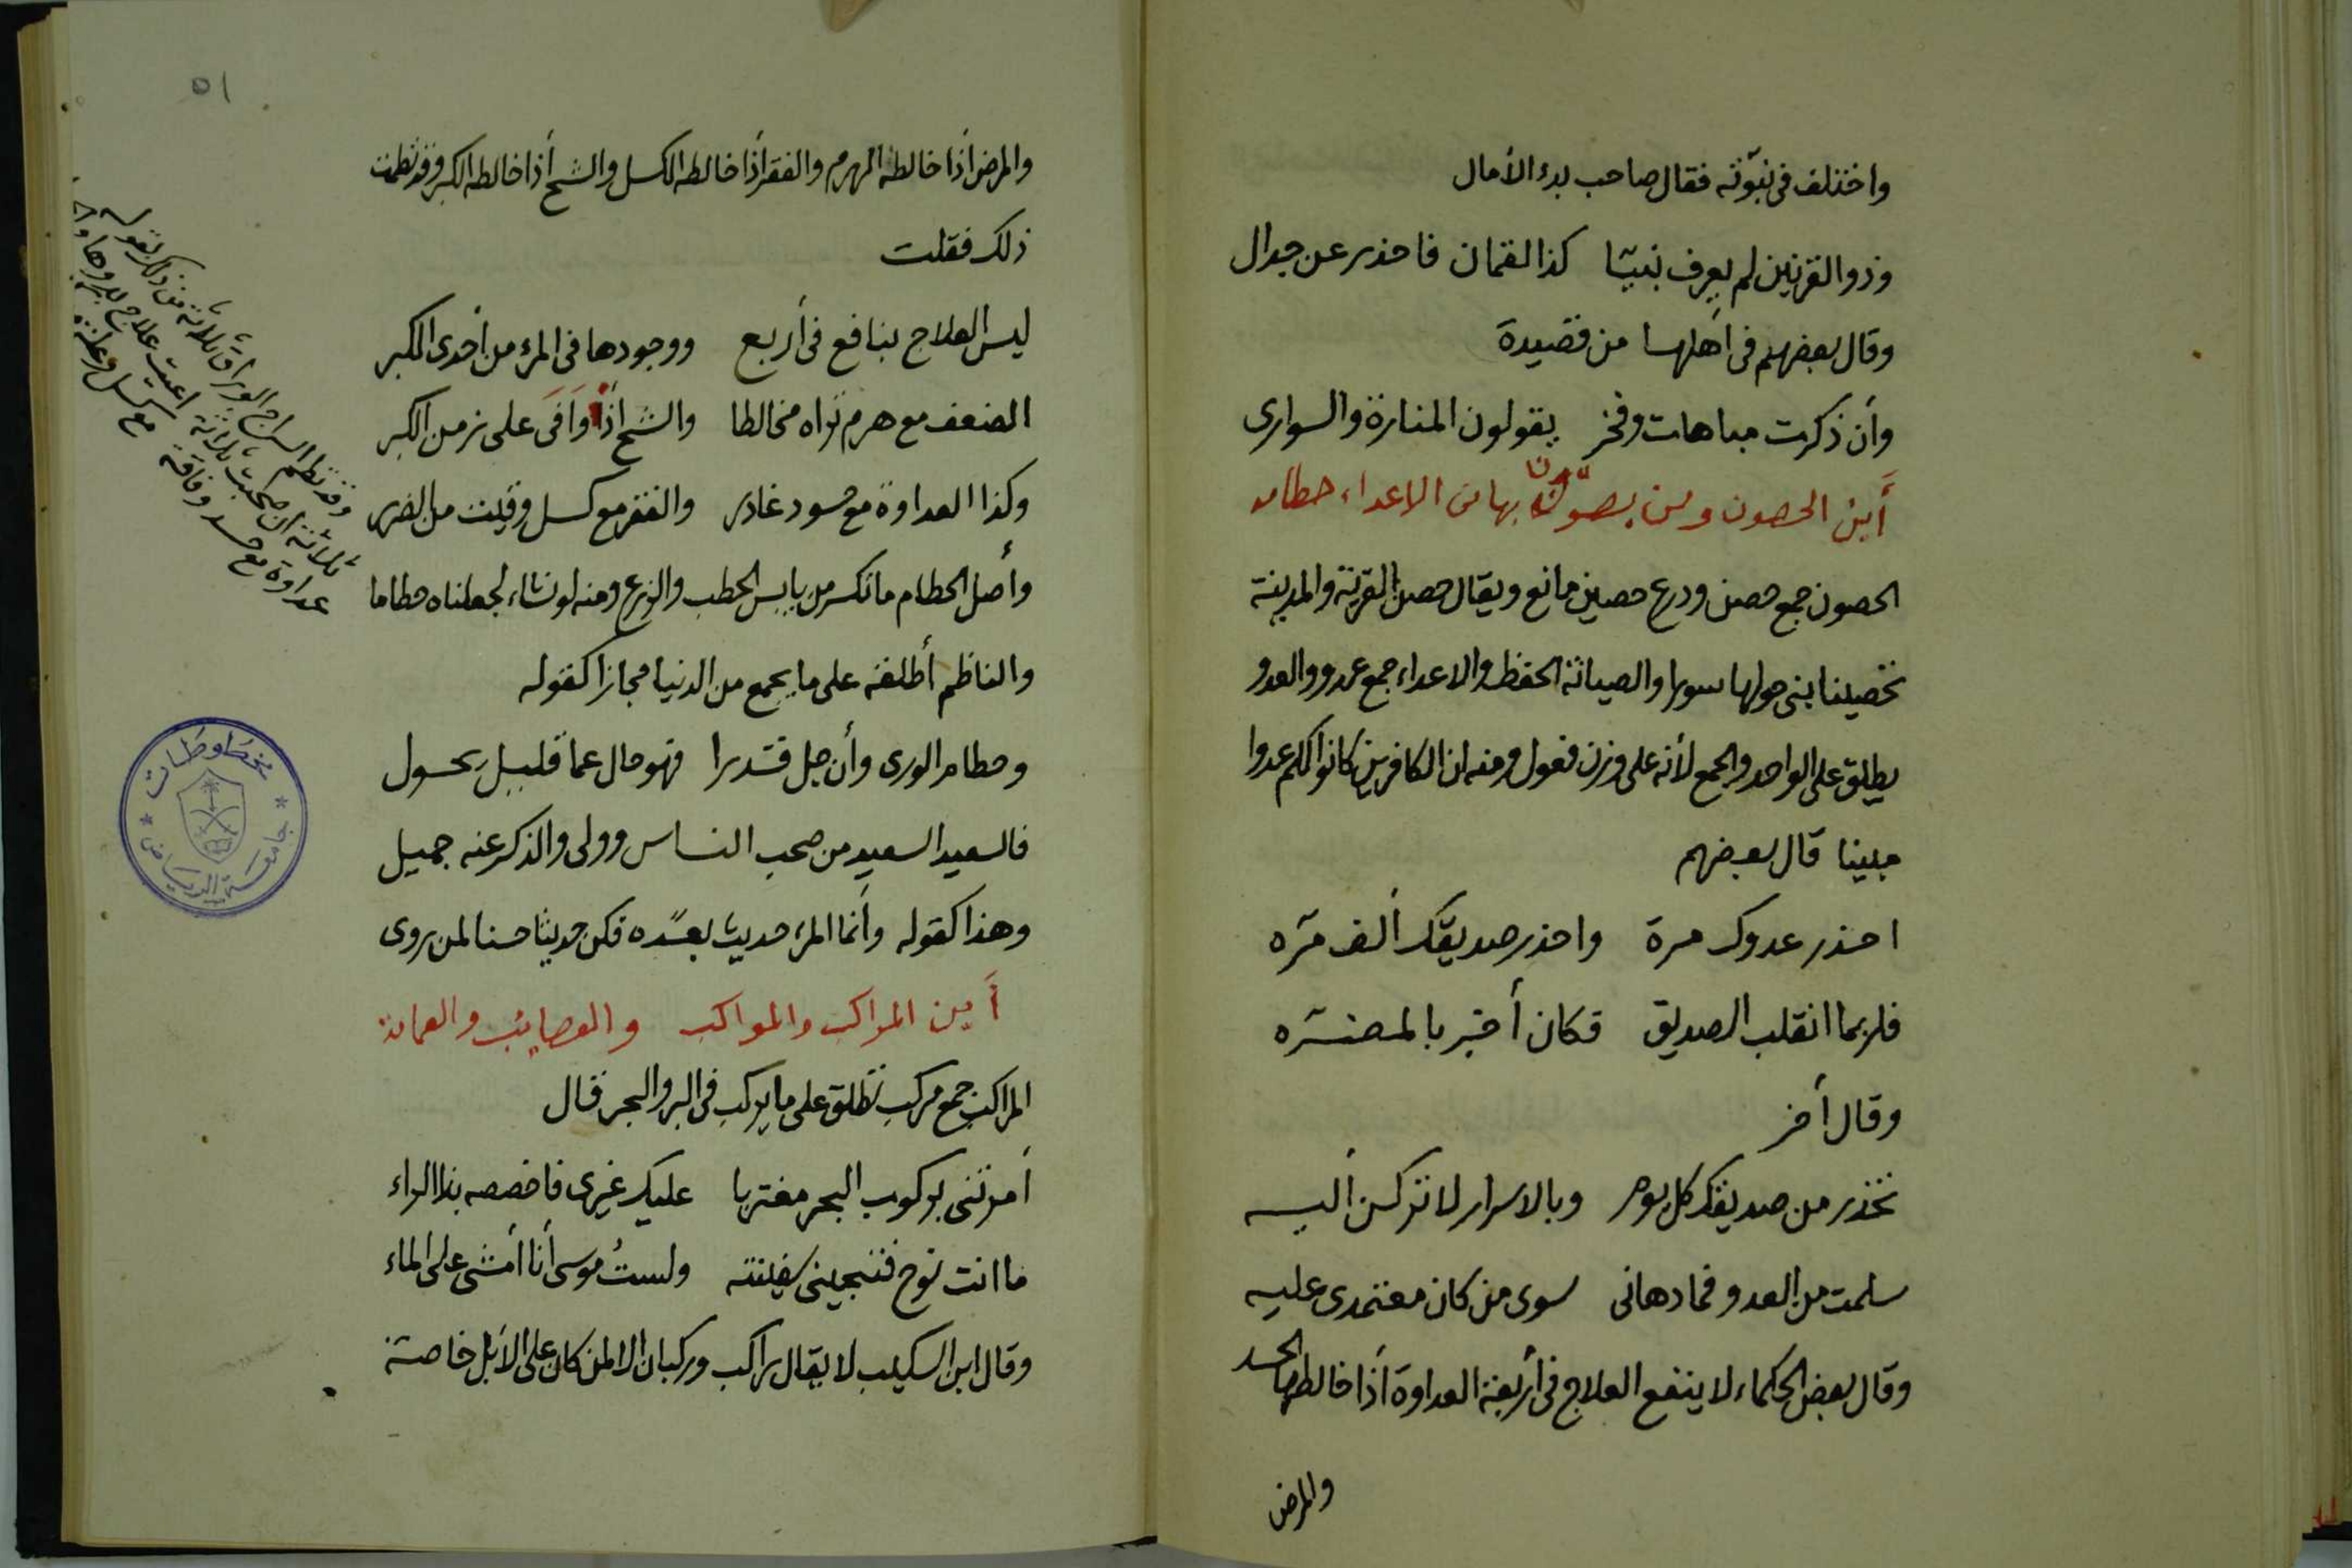 واختلف في نبوّته فقال صاحب بدء الأمال
وذو القرنين لم يعرف نبيّا كذا لقمان فاحذر عن جدال
وقال بعضهم في أهلها من قصيدة
وأن ذكرت مباهات وفخر يقولون المنارة والسوارى
أين الحصون ومن يصون بها من الاعداء حطامه
الحصون جمع حصن ودرع حصين مانع ويقال حصن القرية والمدينة
تحصينا بنى حولها سورا والصيانة الحفظ والاعداء جمع عدو والعدو
يطلق على الواحد والجمع لأنه على وزن فعول ومنه ان الكافرين كانوا لكم عدوا
مبينا قال بعضهم
احذر عدوك مرة واحذر صديقك ألف مرّه
فلربما انقلب الصديق فكان أخبر بالمضرّه
وقال أخر
تحذر من صديقك كل يوم وبالاسرار لا تركن أليه
سلمت من العدو فما دهانى سوى من كان معتمدى عليه
وقال بعض الحكماء لا ينفع العلاج في أربعة العداوة أذا خالطها الحسد
والمرض
٥١
والمرض اذا خالطه الهرم والفقر أذا خالطه الكسل والشح أذا خالطه الكبر وقد نظمت
ذلك فقلت
ليس العلاج بنافع في أربع ووجودها في المرء من أحدى الكبر
الضعف مع هرم تراه مخالطا والشح اذا وافى على زمن الكبر
وكذا العداوة مع حسود غادر والفقر مع كسل وقيت من الضرر
وأصل الحطام ما تكسر من يابس الحطب والزرع ومنه لو نشاء لجعلناه حطاما
والناظم أطلقه على ما يجمع من الدنيا مجازا كقوله
وحطام الورى وأن جل قدرا فهو حال عما قليل يحول
فالسعيد السعيد من صحب الناس وولى والذكر عنه جميل
وهذا كقوله وأنما المرء حديث بعده فكن حديثا حسنا لمن روى
أين المراكب والمواكب والعصايب والعمامة
المراكب جمع مركب تطلق على ما يركب في البر والبحر قال
أمرتنى بركوب البحر مغتربا عليك غيرى فاخصصه بذا الراء
ما انت نوح فتنجينى سفينته ولستُ موسى أنا أمشى على الماء
وقال ابن السكيت لا يقال راكب وركبان الا لمن كان على الأبل خاصة
وقد نظم السراج الوراق ثلاثة من ذلك بقوله
ثلاثة ان صحبت ثلاثة اعيت علاج
عداوة مع حسد وفاقة مع كسل وعلة
مخطوطات
جامعة الرياض